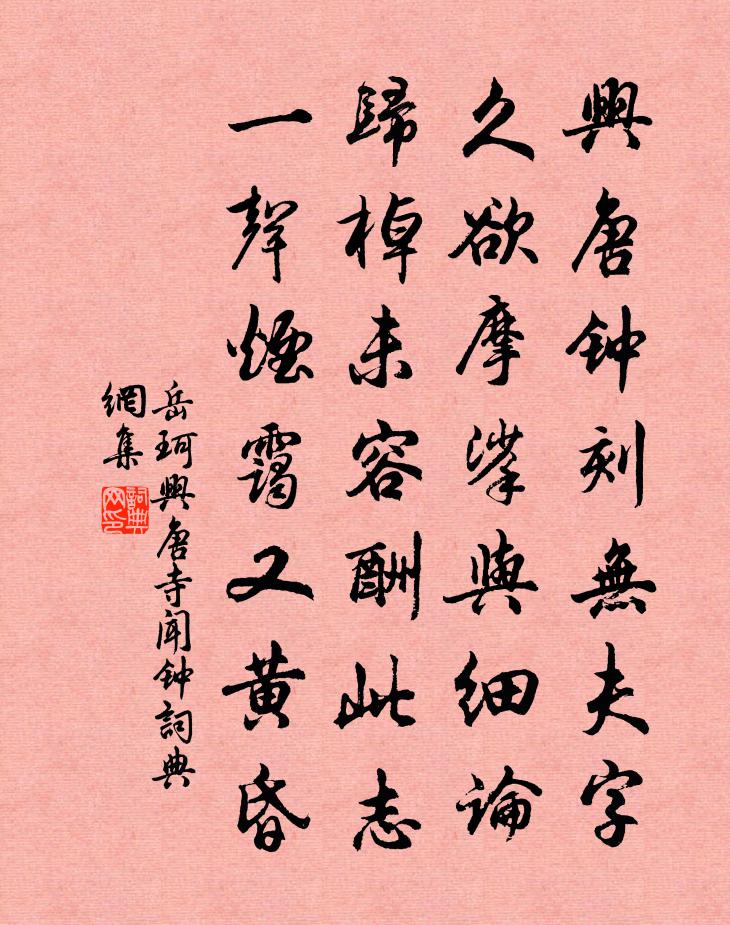 興唐钟刻無夫字
久欲摩挲與細論
歸棹未容酬此志
一聲煙靄又黃昏
岳珂興唐寺聞钟詞典
網集
詞典
网印